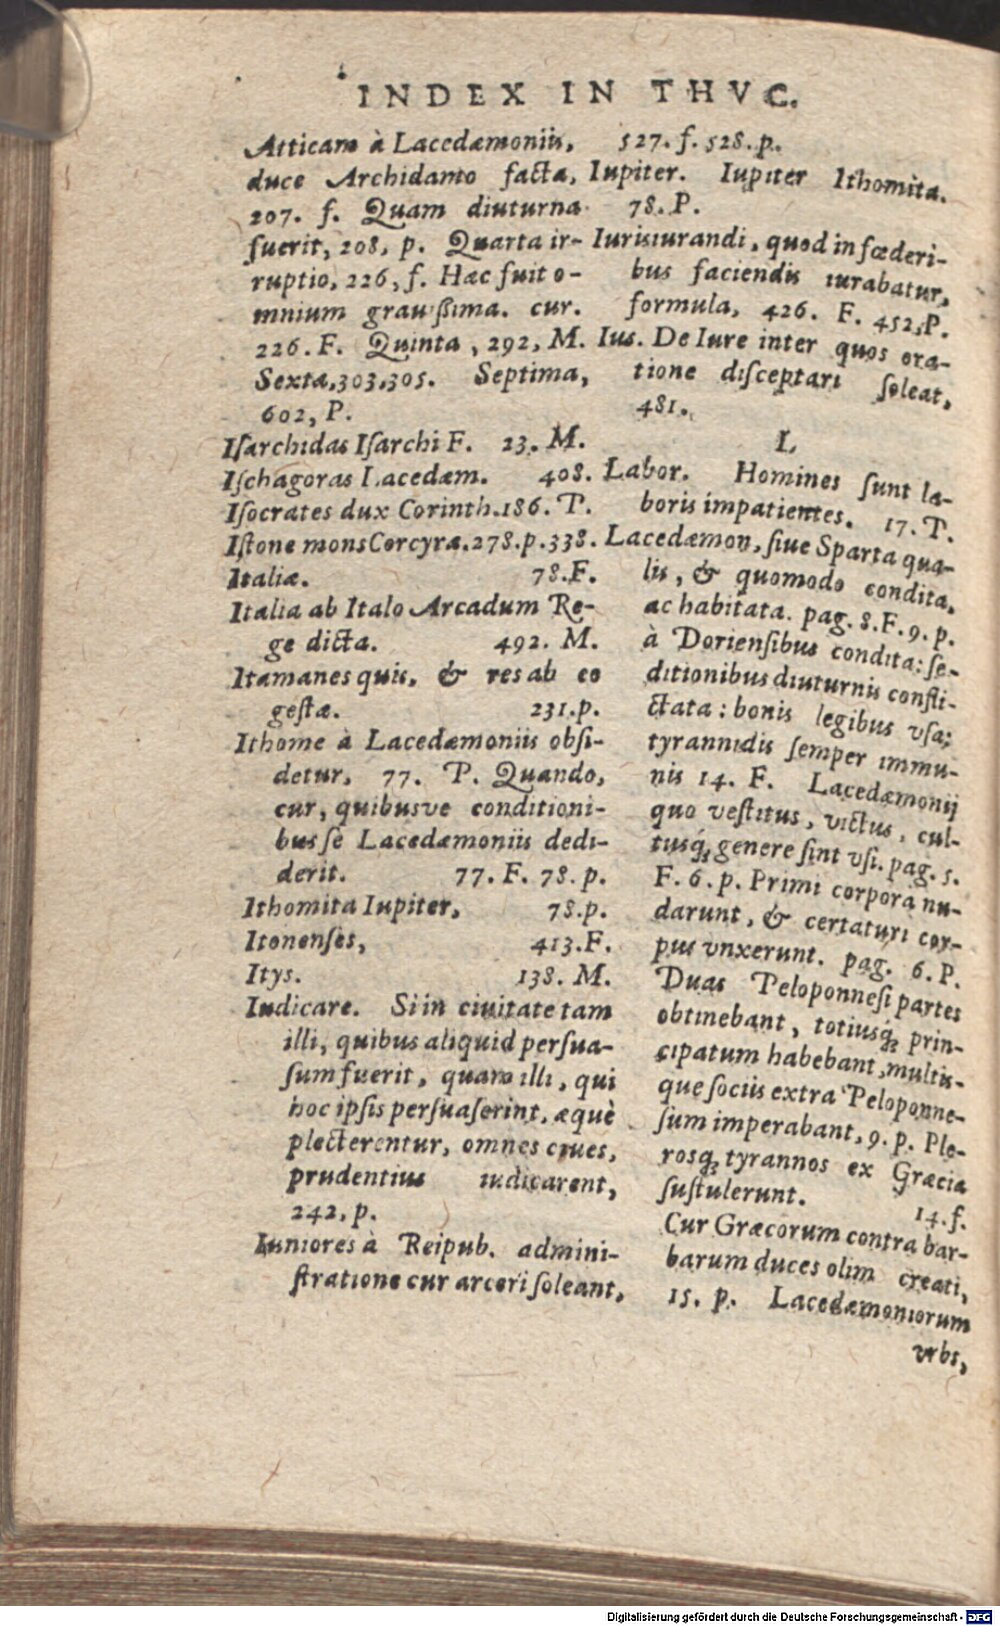 INDEX IN THVC.
Atticam à Lacedæmoniis,
duce Archidamo facta,
207. f. Quam diuturna
fuerit, 208, p. Quarta ir-
ruptio, 226, f. Hæc fuit o-
mnium grauſſima. cur.
226. F. Quinta, 292, M.
Sexta, 303, 305. Septima,
602, P.
Iſarchidas Iſarchi F. 23. M.
Iſchagoras Lacedæm. 408.
Iſocrates dux Corinth. 186. T.
Iſtone mons Corcyræ. 278. p. 338.
Italiæ. 78. F.
Italia ab Italo Arcadum Re-
ge dicta. 492. M.
Itamanes quis, & res ab eo
geſtæ. 231. p.
Ithome à Lacedæmoniis obſi-
detur, 77. P. Quando,
cur, quibusve conditioni-
bus ſe Lacedæmoniis dedi-
derit. 77. F. 78. p.
Ithomita Iupiter, 78. p.
Itonenſes, 413. F.
Itys. 138. M.
Iudicare. Si in ciuitate tam
illi, quibus aliquid perſua-
ſum fuerit, quam illi, qui
hoc ipſis perſuaſerint, æquè
plecterentur, omnes ciues,
prudentius iudicarent,
242, p.
Iuniores à Reipub. admini-
ſtratione cur arceri ſoleant,
527. f. 528. p.
Iupiter. Iupiter Ithomita.
78. P.
Iurisiurandi, quod in fœderi-
bus faciendis iurabatur,
formula, 426. F. 452, P.
Ius. De Iure inter quos ora-
tione diſceptari ſoleat,
481.
L
Labor. Homines ſunt la-
boris impatientes. 17. T.
Lacedæmon, ſiue Sparta qua-
lis, & quomodo condita,
ac habitata. pag. 8. F. 9. p.
à Dorienſibus condita: ſe-
ditionibus diuturnis confli-
ctata: bonis legibus vſa;
tyrannidis ſemper immu-
nis 14. F. Lacedæmonij
quo veſtitus, victus, cul-
tusq́ genere ſint vſi. pag. 5.
F. 6. p. Primi corpora nu-
darunt, & certaturi cor-
pus vnxerunt. pag. 6. P.
Duas Peloponneſi partes
obtinebant, totiusq́ prin-
cipatum habebant, multis-
que ſociis extra Peloponne-
ſum imperabant, 9. p. Ple-
rosq́ tyrannos ex Græcia
ſuſtulerunt. 14. f.
Cur Græcorum contra bar-
barum duces olim creati,
15. p. Lacedæmoniorum
vrbs,
Digitalisierung gefördert durch die Deutsche Forschungsgemeinschaft - DFG